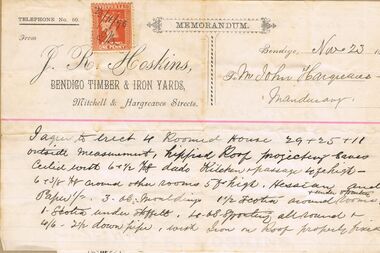 TELEPHONE No. 60.
MEMORANDUM.
From
J. R. Hoskins,
BENDIGO TIMBER & IRON YARDS,
Mitchell & Hargreaves Streets.
ONE PENNY
Bendigo, Nov 23
To Mr John Hargreaves
Mandurang
I agree to erect 4 Roomed House 29 + 25 + 11
outside measurement, hipped Roof projecting Eaves
with 6 + 1/2 dado Kitchen & passage high
6 + 3/8 around other rooms 5 ft high. Hessian and
Paper 1/- 3 Mouldings 1 1/2 Scotia around rooms
1 Scotia under Soffit. all round &
4/6 - down pipe, with Iron on Roof properly fixed